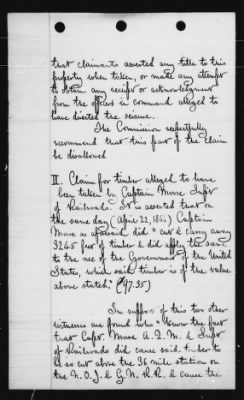 that claimants asserted any title to this
property when taken, or made any attempt
to obtain any receipt or acknowledgment
from the officers in command alleged to
have directed the seizure.
The Commission respectfully
recommend that this part of the claim
be disallowed
II. Claim for timber alleged to have
been taken by Captain Morse Supt
of Railroads. It is asserted that on
the same day (April 22, 1864) Captain
Morse as aforesaid did "cut & carry away
3245 feet of timber & did apply the same
to the use of the Government of the United
States, which said timber is of the value
above stated." ($97.35)
In support of this two other
witnesses are found who know the fact
that Capt. Morse A.Q.M. & Supt
of Railroads did cause said timber to
be so cut above the 36 mile station on
the N.O.J. & G.N. R.R. & cause the